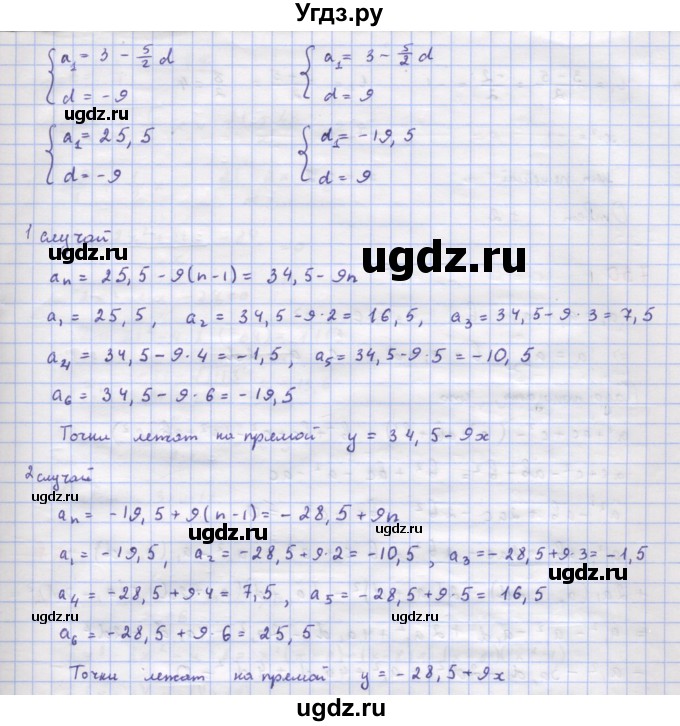 Угдз.ру
a₁ = 3 − 5/2 d
d = −9
a₁ = 3 − 5/2 d
d = 9
ugdz.ru
ugdz.ru
a₁ = 25,5
d = −9
d₁ = −19,5
d = 9
ugdz.ru
1 случай
ugdz.ru
aₙ = 25,5 − 9(n−1) = 34,5 − 9n
a₁ = 25,5, a₂ = 34,5 − 9·2 = 16,5, a₃ = 34,5 − 9·3 = 7,5
ugdz.ru
a₄ = 34,5 − 9·4 = −1,5, a₅ = 34,5 − 9·5 = −10,5
ugdz.ru
a₆ = 34,5 − 9·6 = −19,5
Точки лежат на прямой y = 34,5 − 9x
ugdz.ru
2 случай
ugdz.ru
aₙ = −19,5 + 9(n−1) = −28,5 + 9n
ugdz.ru
ugdz.ru
a₁ = −19,5, a₂ = −28,5 + 9·2 = −10,5, a₃ = −28,5 + 9·3 = −1,5
ugdz.ru
a₄ = −28,5 + 9·4 = 7,5, a₅ = −28,5 + 9·5 = 16,5
ugdz.ru
a₆ = −28,5 + 9·6 = 25,5
Точки лежат на прямой y = −28,5 + 9x
ugdz.ru